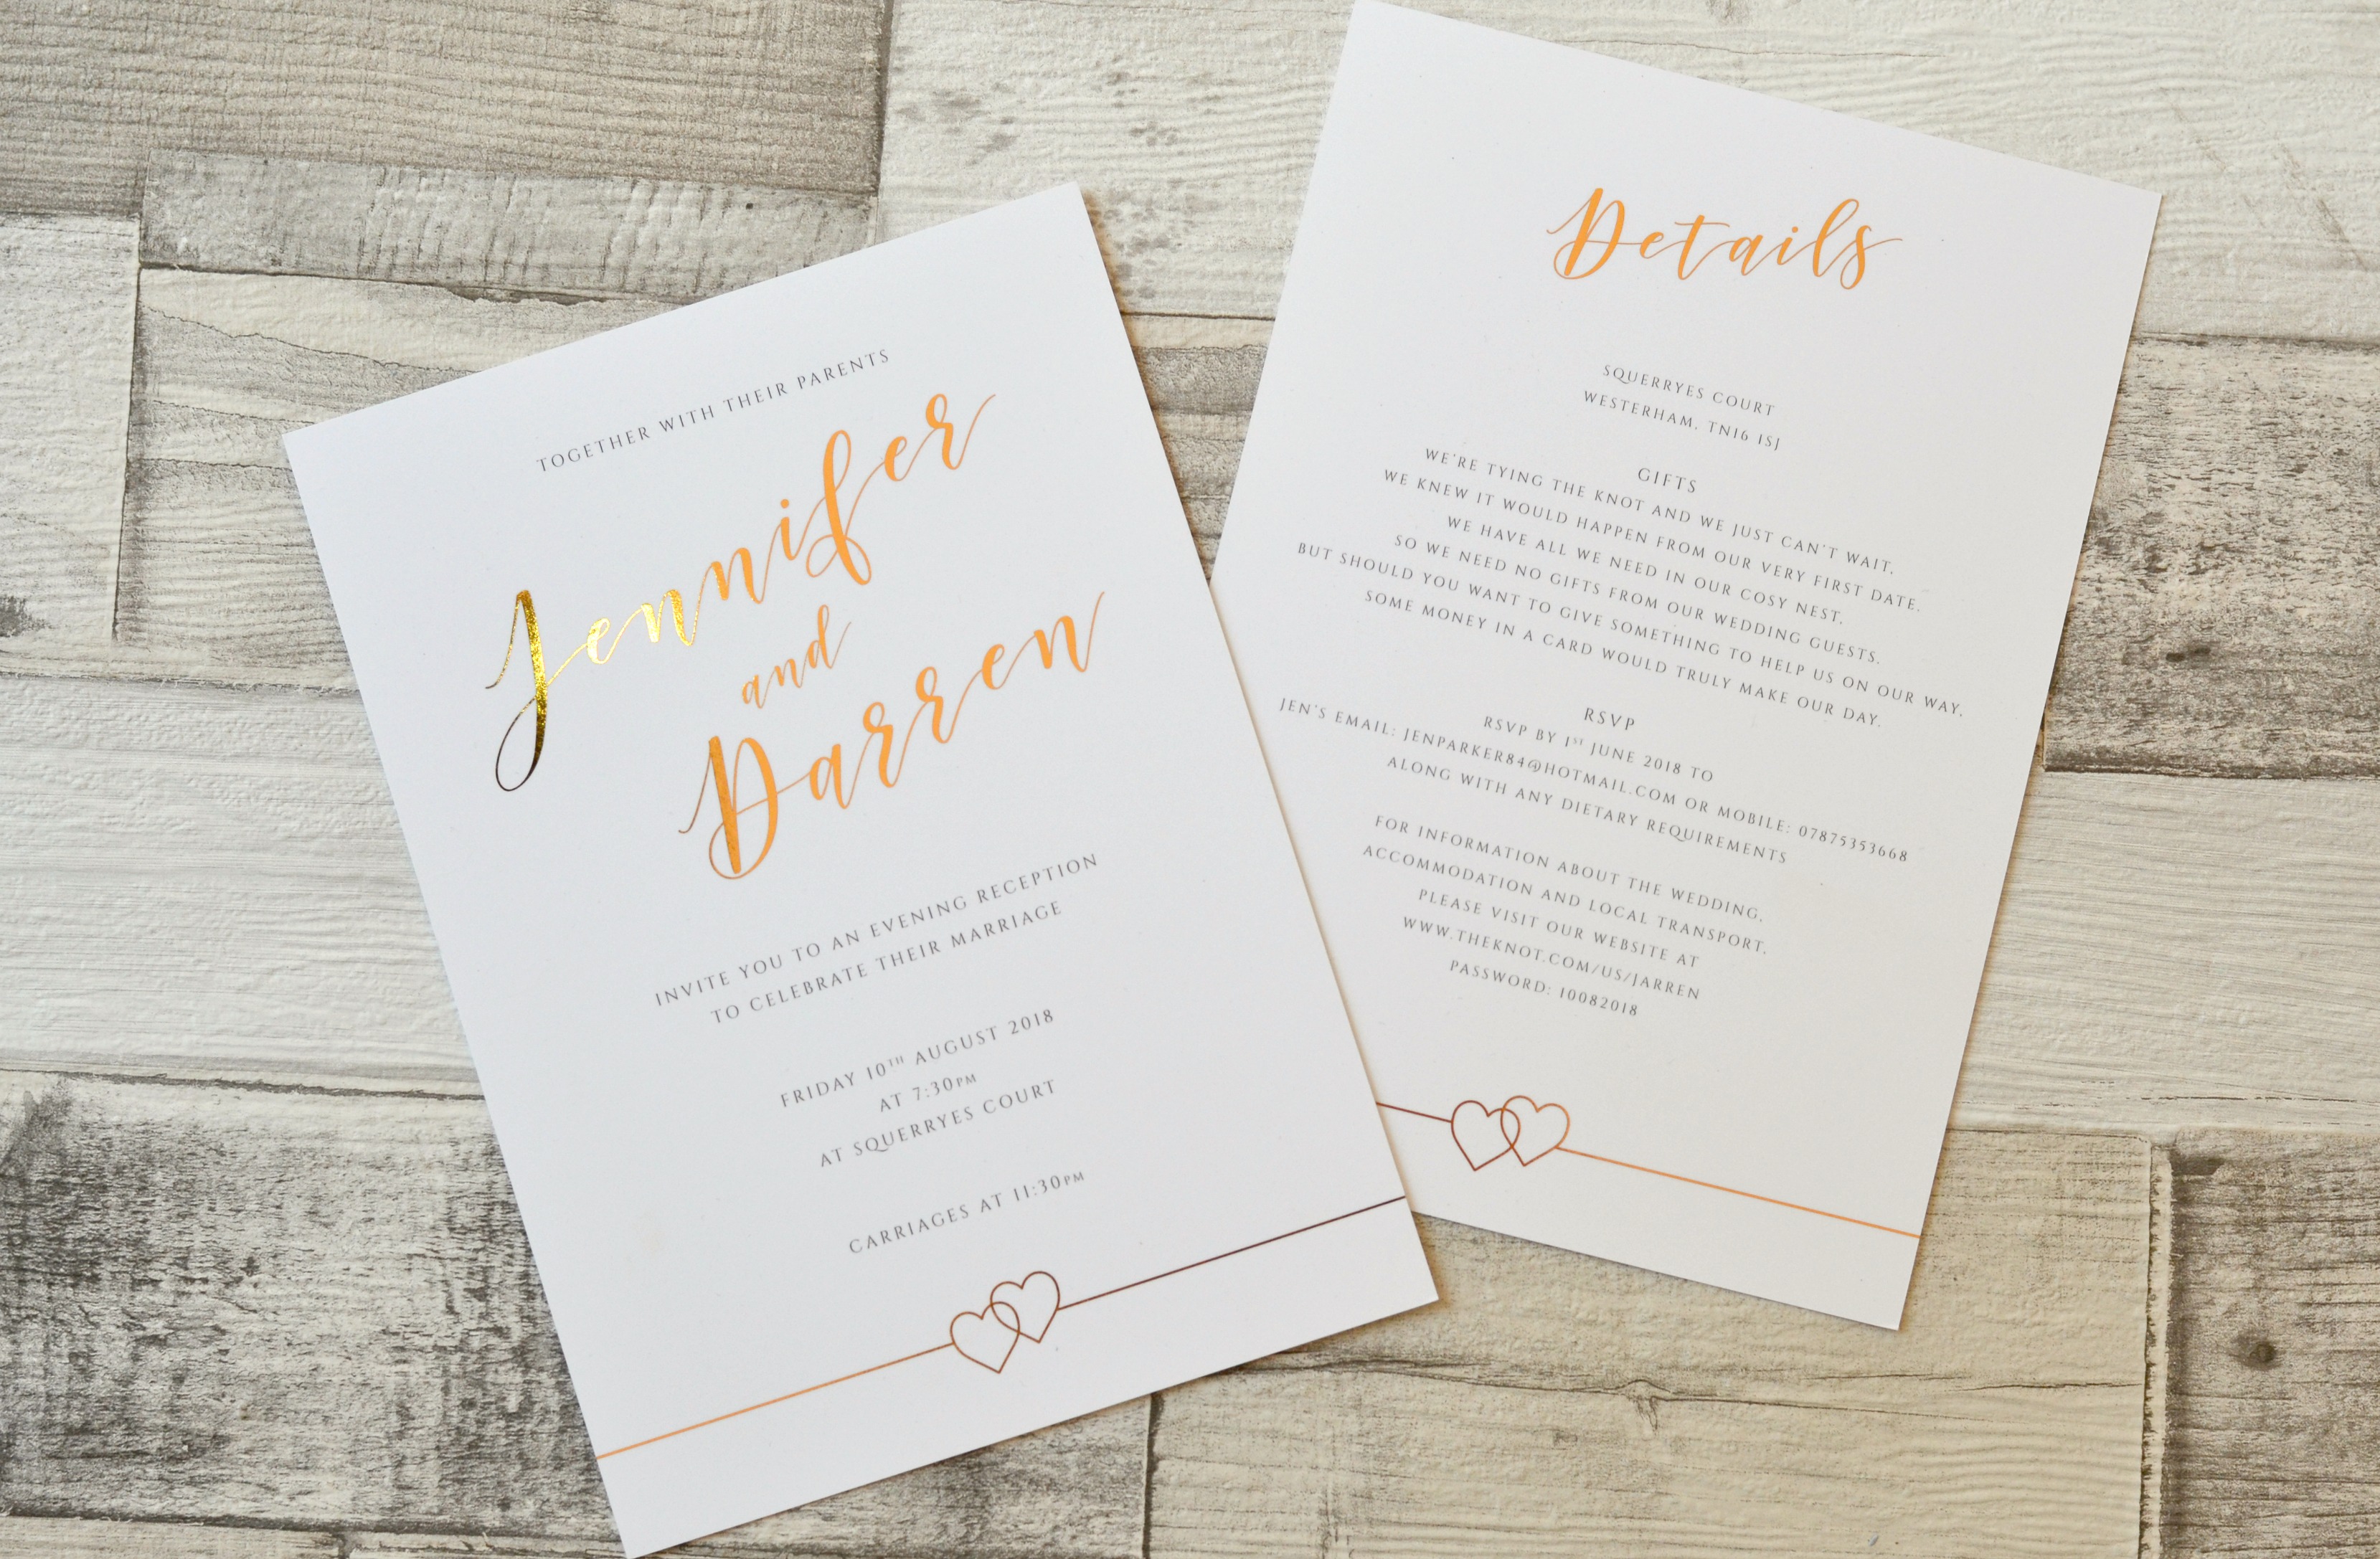 TOGETHER WITH THEIR PARENTS
Jennifer
and
Darren
INVITE YOU TO AN EVENING RECEPTION
TO CELEBRATE THEIR MARRIAGE
FRIDAY 10TH AUGUST 2018
AT 7:30PM
AT SQUERRYES COURT
CARRIAGES AT 11:30PM
Details
SQUERRYES COURT
WESTERHAM, TN16 1SJ
GIFTS
WE'RE TYING THE KNOT AND WE JUST CAN'T WAIT,
WE KNEW IT WOULD HAPPEN FROM OUR VERY FIRST DATE.
WE HAVE ALL WE NEED IN OUR COSY NEST,
SO WE NEED NO GIFTS FROM OUR WEDDING GUESTS.
BUT SHOULD YOU WANT TO GIVE SOMETHING TO HELP US ON OUR WAY,
SOME MONEY IN A CARD WOULD TRULY MAKE OUR DAY.
RSVP
RSVP BY 1ST JUNE 2018 TO
JEN'S EMAIL: JENPARKER84@HOTMAIL.COM OR MOBILE: 07875353668
ALONG WITH ANY DIETARY REQUIREMENTS
FOR INFORMATION ABOUT THE WEDDING,
ACCOMMODATION AND LOCAL TRANSPORT,
PLEASE VISIT OUR WEBSITE AT
WWW.THEKNOT.COM/US/JARREN
PASSWORD: 10082018